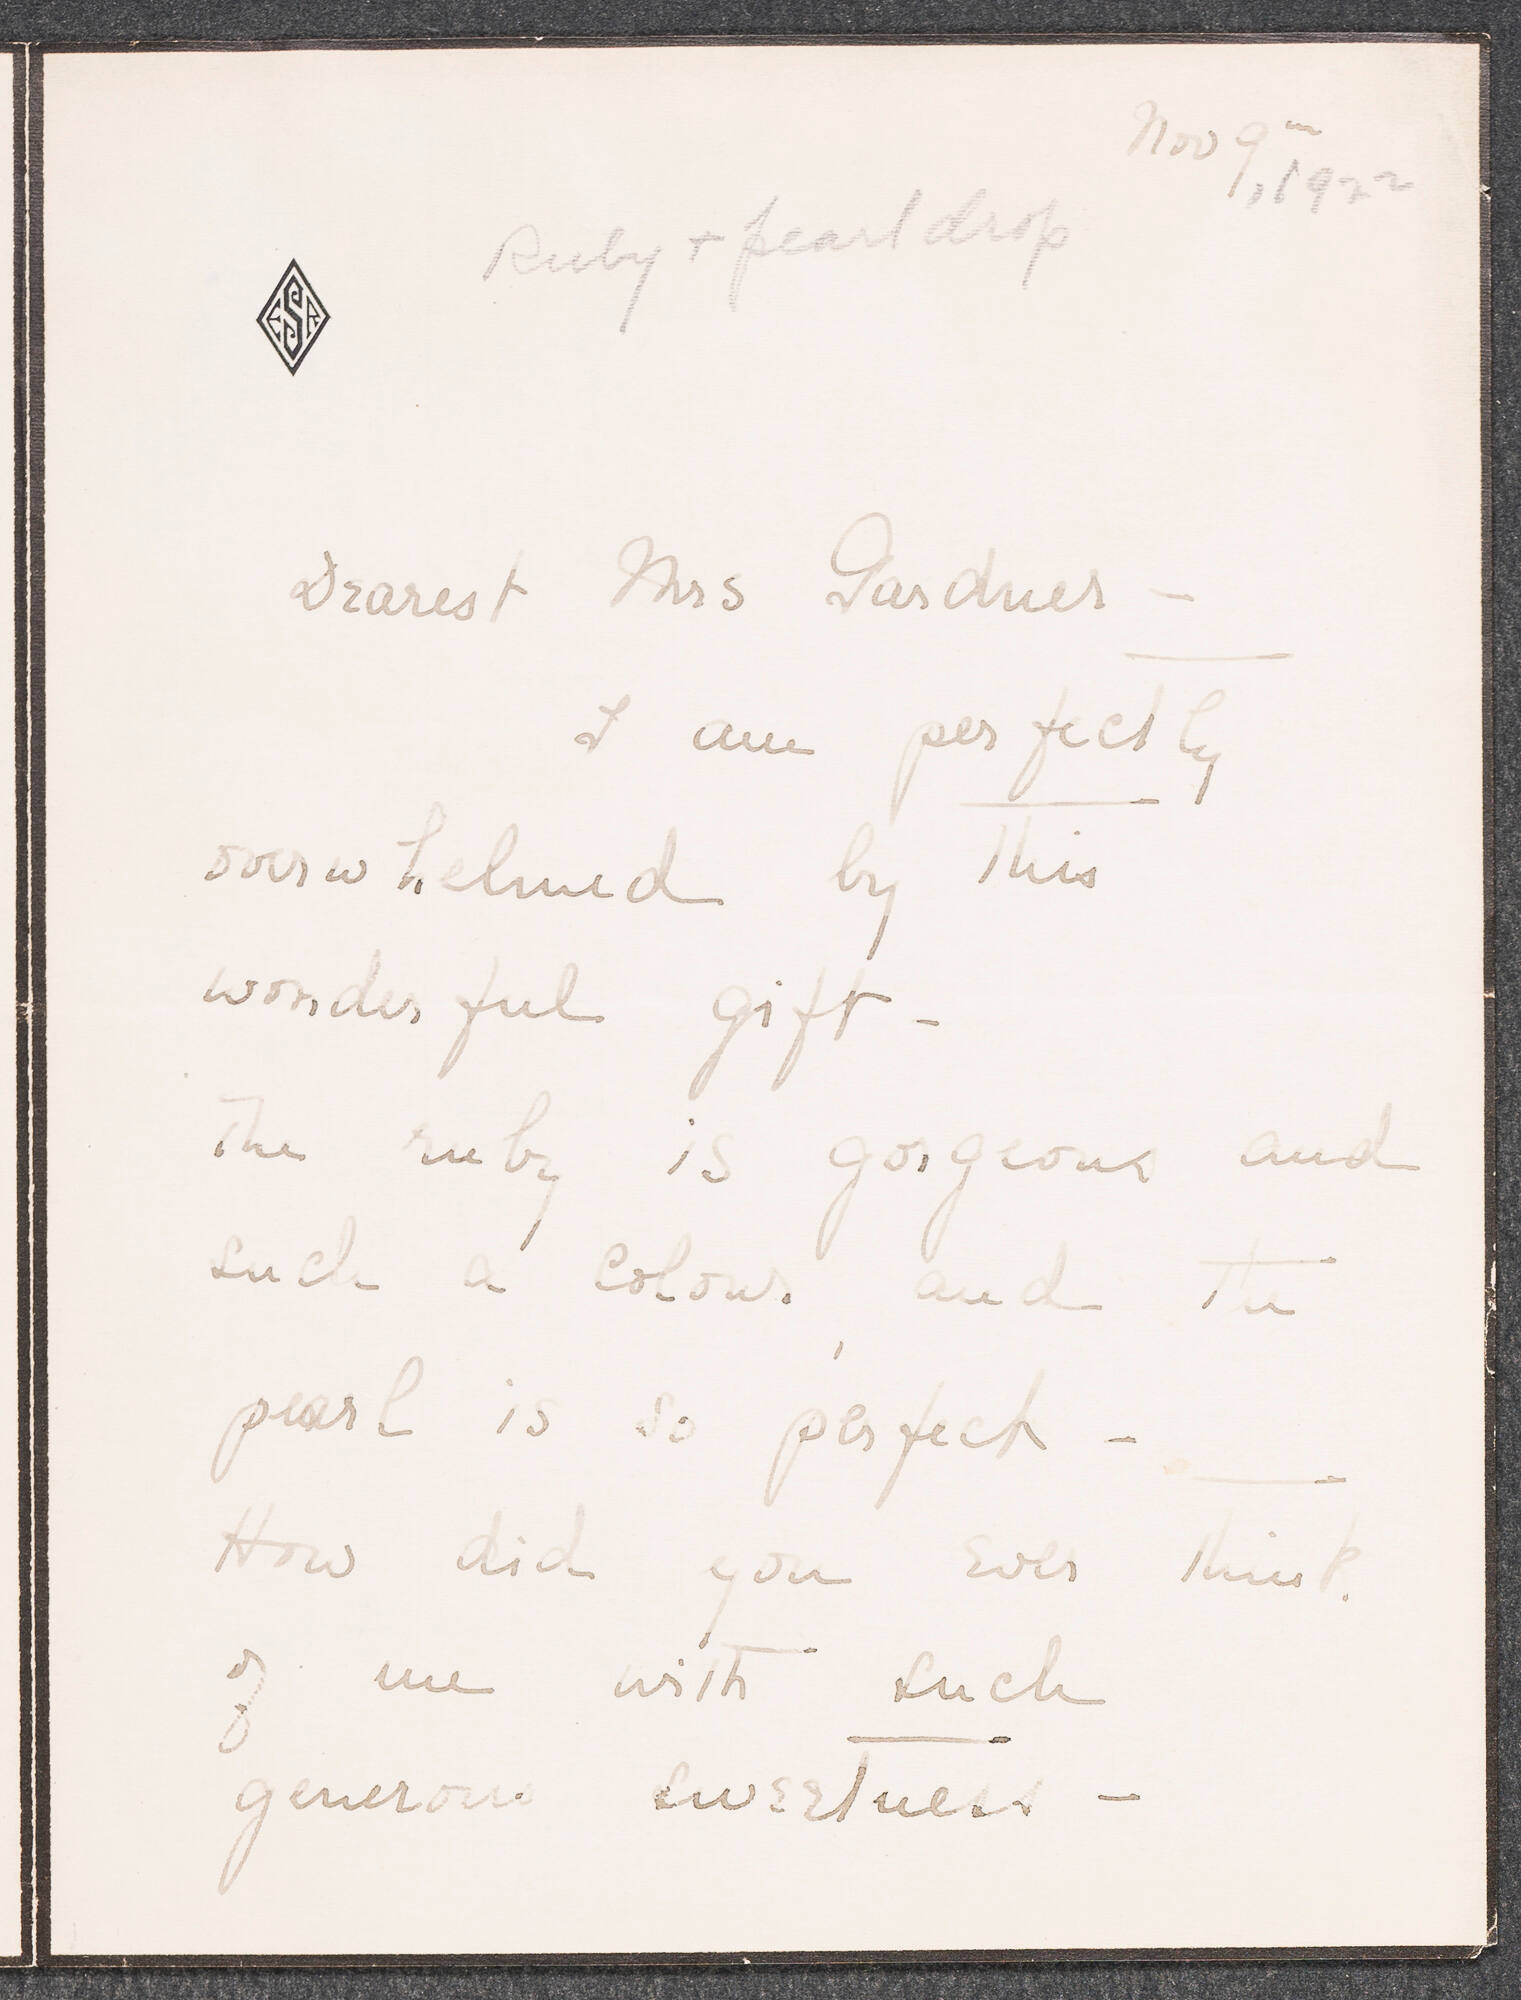 Nov 9th, 1922
Ruby + pearl drop
ESR
Dearest Mrs Gardner -
I am perfectly
overwhelmed by this
wonderful gift -
The ruby is gorgeous and
such a colour, and the
pearl is so perfect -
How did you ever think
of me with such
generous sweetness -